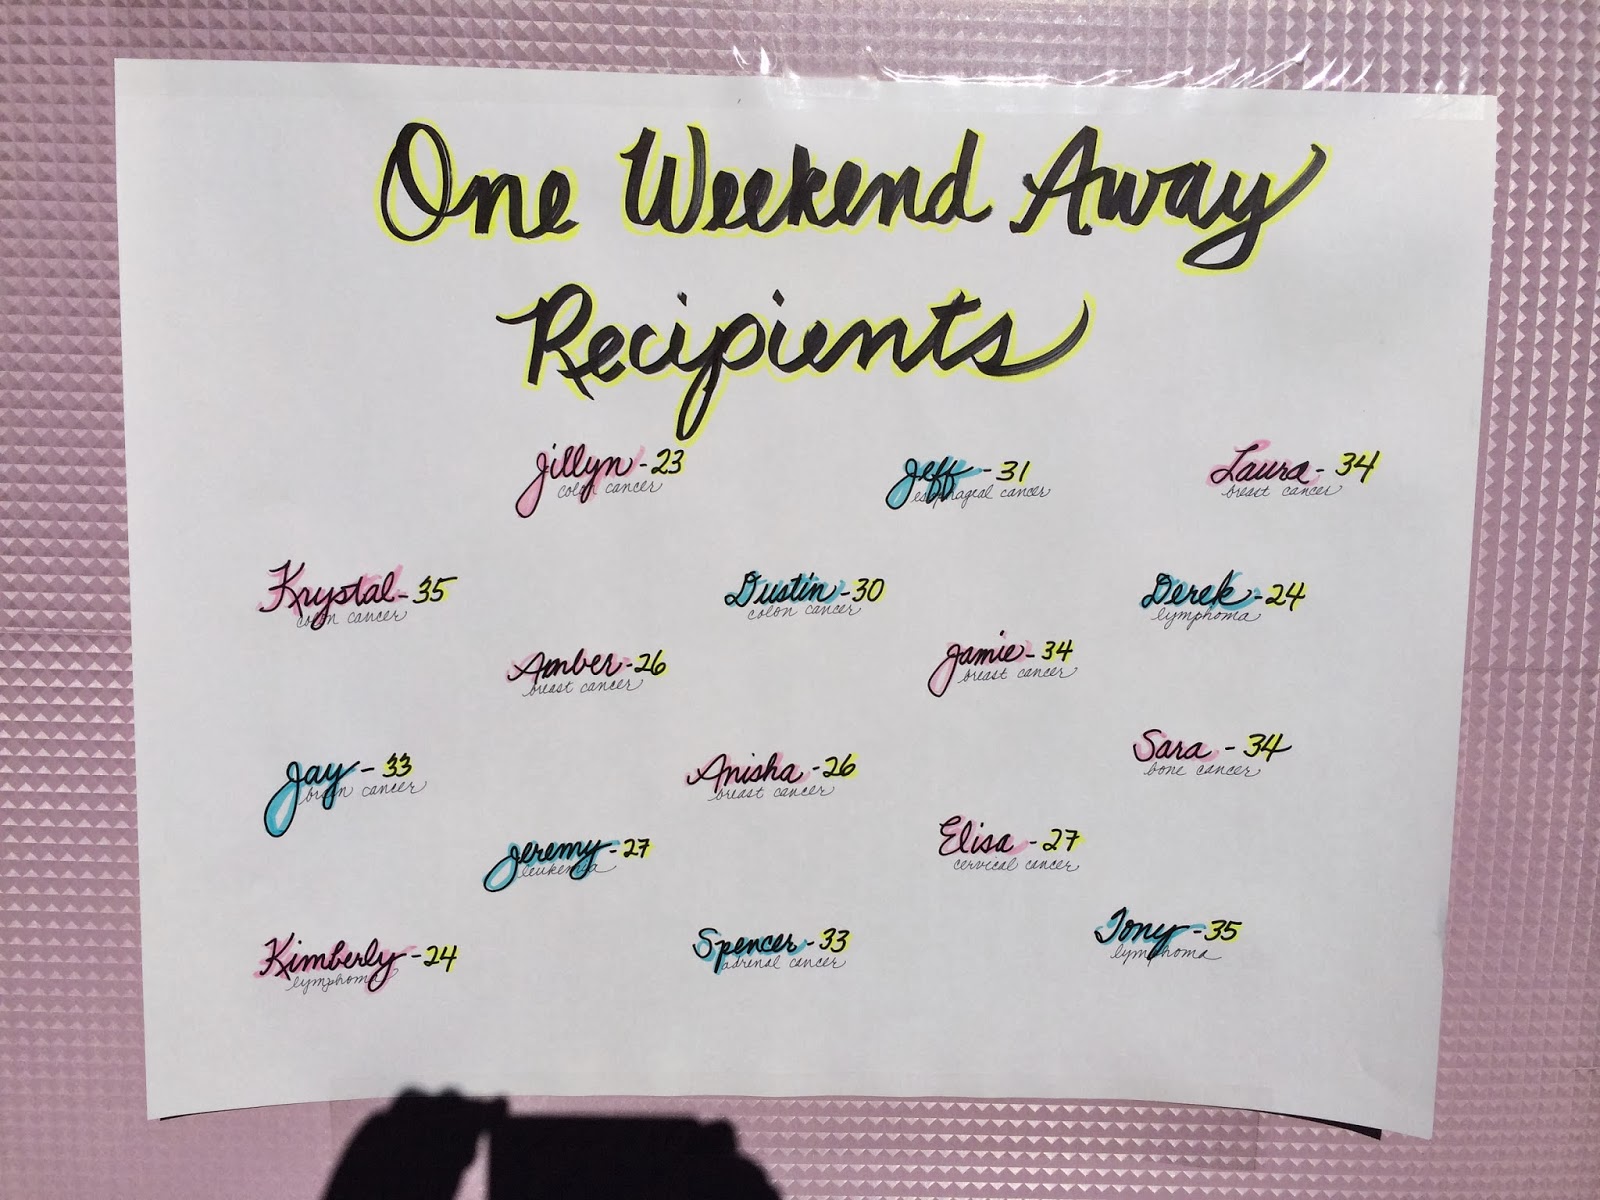 One Weekend Away
Recipients
Jillyn - 23
colon cancer
Jeff - 31
esophageal cancer
Laura - 34
breast cancer
Krystal - 35
colon cancer
Dustin - 30
colon cancer
Derek - 24
lymphoma
Amber - 26
breast cancer
Jamie - 34
breast cancer
Jay - 33
brain cancer
Anisha - 26
breast cancer
Sara - 34
bone cancer
Jeremy - 27
leukemia
Elisa - 27
cervical cancer
Kimberly - 24
lymphoma
Spencer - 33
adrenal cancer
Tony - 35
lymphoma